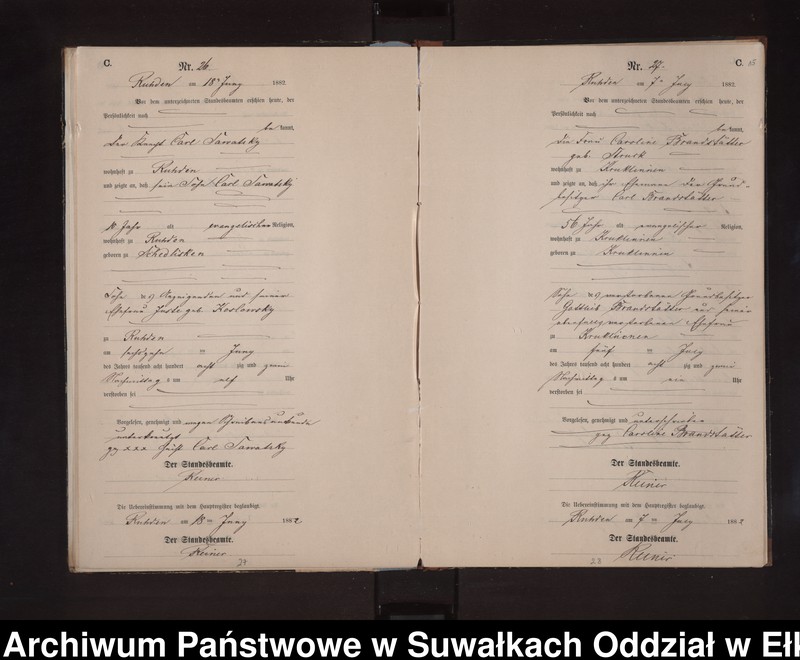 C.
Nr. 26.
Ruhden am 18ⁿ Juny 1882.
Vor dem unterzeichneten Standesbeamten erschien heute, der
Persönlichkeit nach
be kannt,
Der Knecht Carl Sawatzky
wohnhaft zu Ruhden
und zeigte an, daß sein Sohn Carl Sawatzky
Jahr alt evangelischer Religion,
wohnhaft zu Ruhden
geboren zu Schedlisken
Sohn des Anzeigenden und seiner
Ehefrau Juste geb. Koslowsky
zu Ruhden
am sechszehn ten Juny
des Jahres tausend acht hundert acht zig und zwei
Nachmittag s um elf Uhr
verstorben sei
Vorgelesen, genehmigt und wegen Schreibensunkunde
unterkreuzt
gez xxx Carl Sawatzky
Der Standesbeamte.
Reiner
Die Uebereinstimmung mit dem Hauptregister beglaubigt.
Ruhden am 18 ten Juny 1882
Der Standesbeamte.
Reiner
24
C. 15
Nr. 27.
Ruhden am 7ⁿ July 1882.
Vor dem unterzeichneten Standesbeamten erschien heute, der
Persönlichkeit nach
be kannt,
die Frau Caroline Brandstätter
geb.
wohnhaft zu Kruklinnen
und zeigte an, daß ihr Ehemann der Grund-
besitzer Carl Brandstätter
56 Jahr alt evangelischer Religion,
wohnhaft zu Kruklinnen
geboren zu Kruklinnen
Sohn des verstorbenen Grundbesitzer
Gottlieb Brandstätter und seiner
ebenfalls verstorbenen Ehefrau
zu Kruklinnen
am fünf ten July
des Jahres tausend acht hundert acht zig und zwei
Nachmittag s um ein Uhr
verstorben sei
Vorgelesen, genehmigt und unterschrieben
gez Caroline Brandstätter
Der Standesbeamte.
Reiner
Die Uebereinstimmung mit dem Hauptregister beglaubigt.
Ruhden am 7 ten July 1882
Der Standesbeamte.
Reiner
23
Archiwum Państwowe w Suwałkach Oddział w Ełk